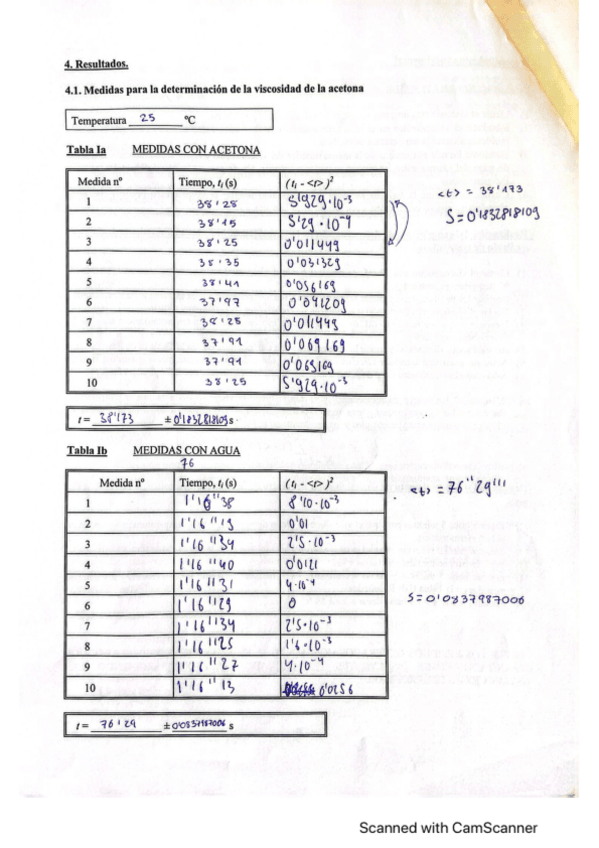 4. Resultados.
4.1. Medidas para la determinación de la viscosidad de la acetona
Temperatura 25 ºC
Tabla Ia MEDIDAS CON ACETONA
Medida nº Tiempo, ti (s) (ti - <t>)²
1 38'28 5'929·10⁻³
2 38'15 5'29·10⁻⁴
3 38'25 0'011449
4 38'35 0'031329
5 38'41 0'056169
6 37'97 0'041209
7 38'25 0'011449
8 37'91 0'069169
9 37'91 0'069169
10 38'25 5'929·10⁻³
<t> = 38'173
S=0'1832818109
t = 38'173 ± 0'1832818109 s
Tabla Ib MEDIDAS CON AGUA
76
Medida nº Tiempo, ti (s) (ti - <t>)²
1 1'16''38 8'10·10⁻³
2 1'16''19 0'01
3 1'16''34 2'5·10⁻³
4 1'16''40 0'0121
5 1'16''31 4·10⁻⁴
6 1'16''29 0
7 1'16''34 2'5·10⁻³
8 1'16''25 1'6·10⁻³
9 1'16''27 4·10⁻⁴
10 1'16''13 0'0256
<t> = 76''29'''
S=0'0837987006
t = 76'29 ± 0'0837987006 s
Scanned with CamScanner